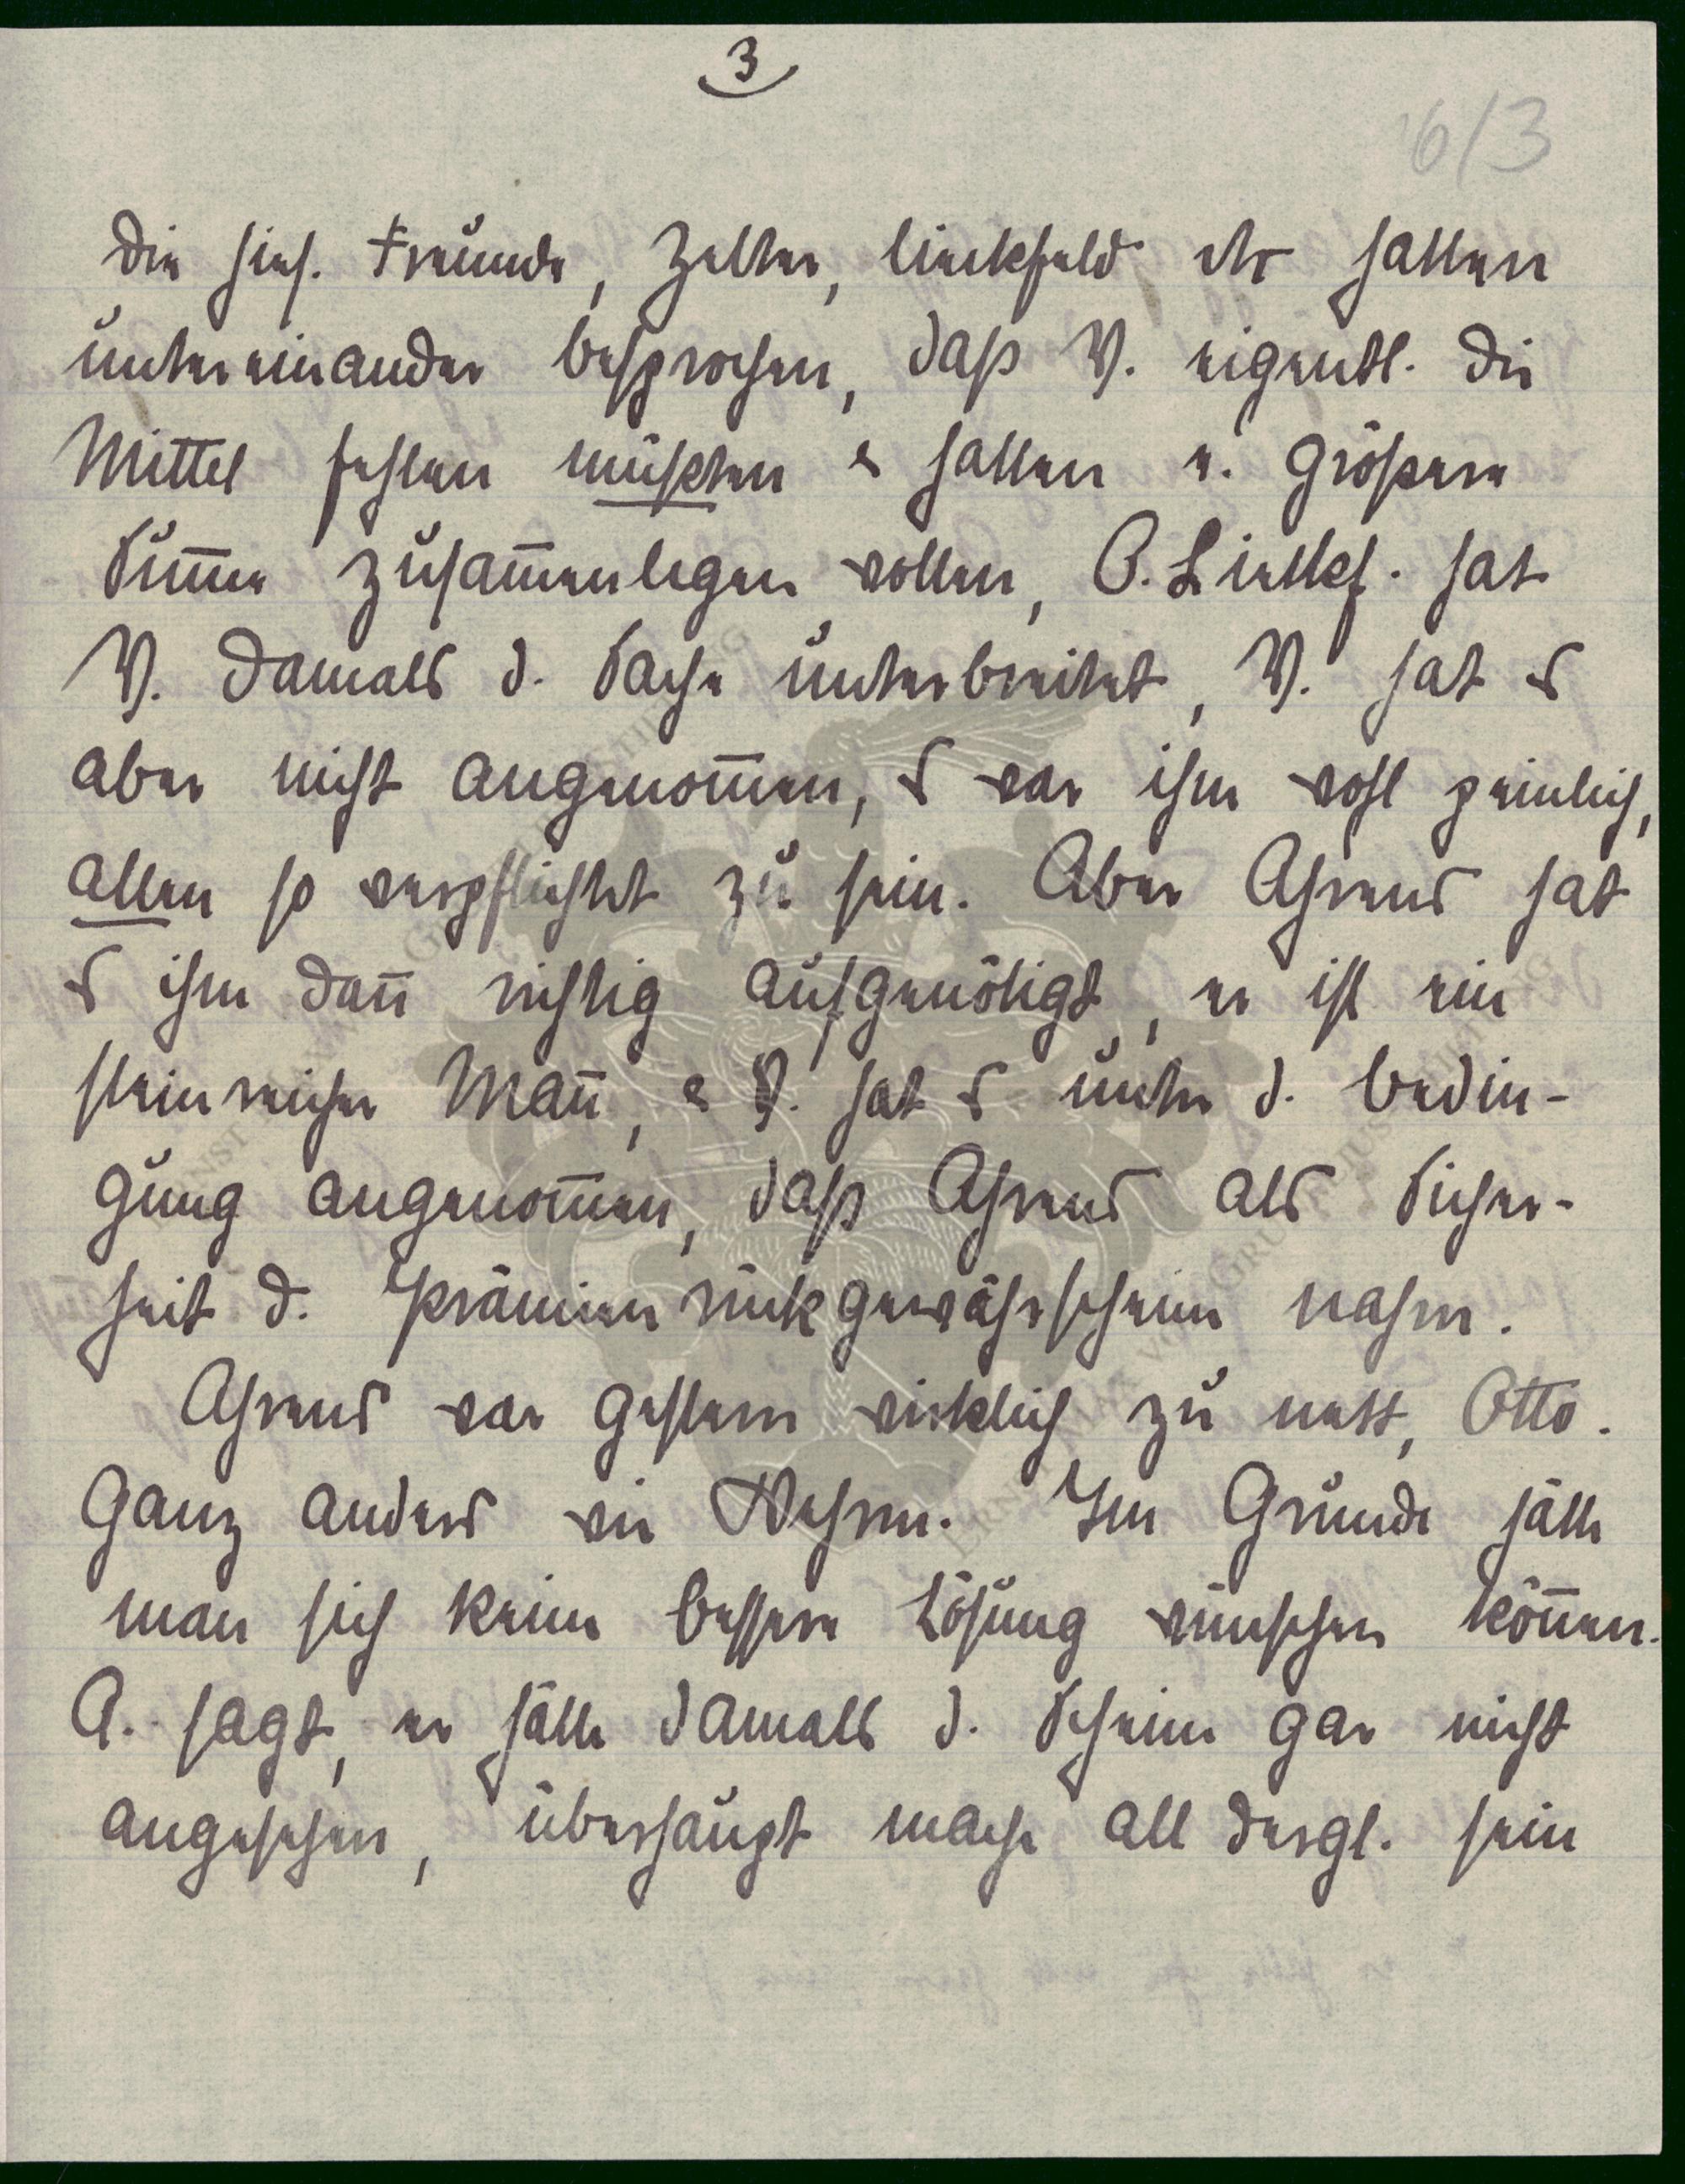 3
6/3
Die hies. Freunde, Zelter, Lietkfeld etc hatten
untereinander besprochen, daß V. eigentl. die
Mittel fehlen müßten & hatten e. größere
Summe zusam̅enlegen wollen, O. Lietkf. hat
V. damals d. Sache unterbreitet, V. hat es
aber nicht angenom̅en, es war ihm wohl peinlich,
allen so verpflichtet zu sein. Aber Ahrens hat
es ihm dan̅ richtig aufgenötigt, er ist ein
steinreicher Man̅, & V. hat es unter d. Bedin-
gung angenom̅en, daß Ahrens als Sicher-
heit d. Prämienrückgewährscheine nahm.
Ahrens war gestern wirklich zu nett, Otto.
Ganz anders wie Wehrm. Im Grunde hätte
man sich keine bessere Lösung wünschen kön̅en.
A. sagt, er hätte damals d. Scheine gar nicht
angesehen, überhaupt mache all dergl. sein